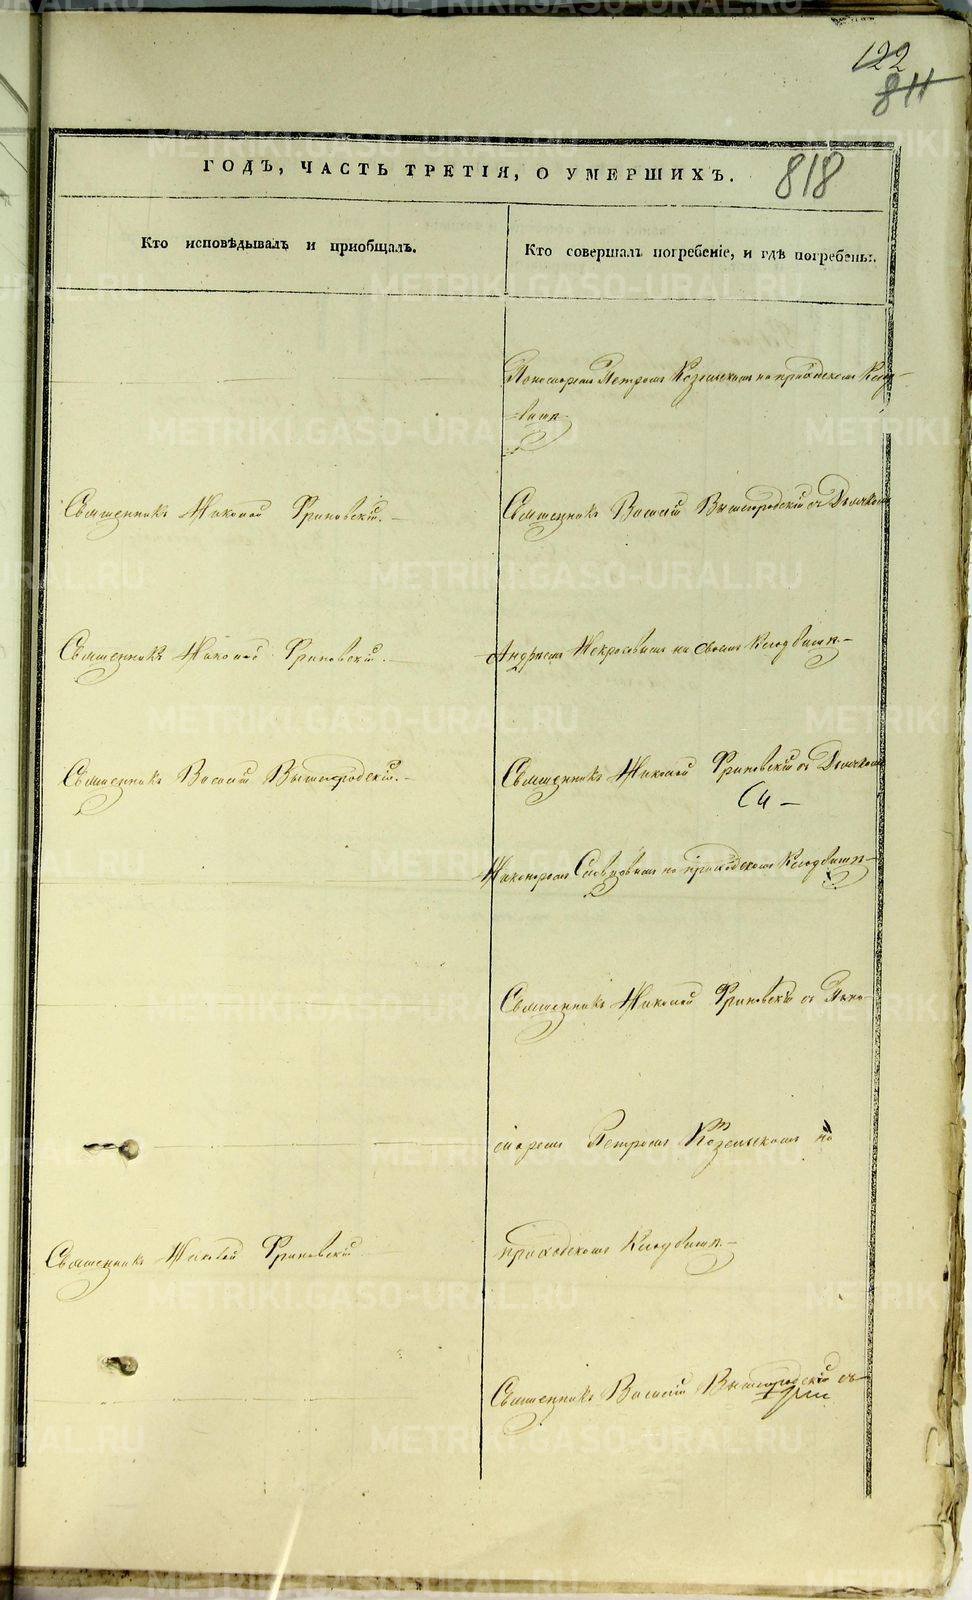 122
811
818
ГОДЪ, ЧАСТЬ ТРЕТІЯ, О УМЕРШИХЪ.
Кто исповѣдывалъ и приобщалъ.
Кто совершалъ погребеніе, и гдѣ погребены.
Пономаремъ Петромъ Козельскимъ на приходскомъ Клад-
-бищѣ.
Священникъ Николай Гриновскій.
Священникъ Василій Вышгородскій съ Дьячкомъ
Священникъ Николай Гриновскій.
Андреемъ Некрасовымъ на своемъ Кладбищѣ.
Священникъ Василій Вышгородскій.
Священникъ Николай Гриновскій съ Дьячкомъ
Никаноромъ на приходскомъ Кладбищѣ
Священникъ Николай Гриновскій съ Поно-
маремъ Петромъ Козельскимъ на
Священникъ Гриновскій
приходскомъ Кладбищѣ.
Священникъ Василій Вышгородскій съ
METRIKI.GASO-URAL.RU